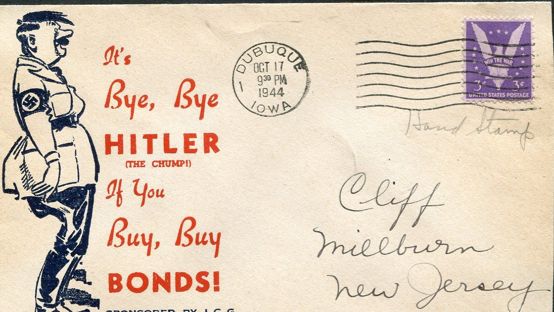 It's
Bye, Bye
HITLER
(THE CHUMP!)
If You
Buy, Buy
BONDS!
SPONSORED BY J.C.C.
DUBUQUE
OCT 17
9 30 PM
1944
IOWA
1
WIN THE WAR
3¢ 3¢
UNITED STATES POSTAGE
Hand Stamp
Cliff
Millburn
New Jersey